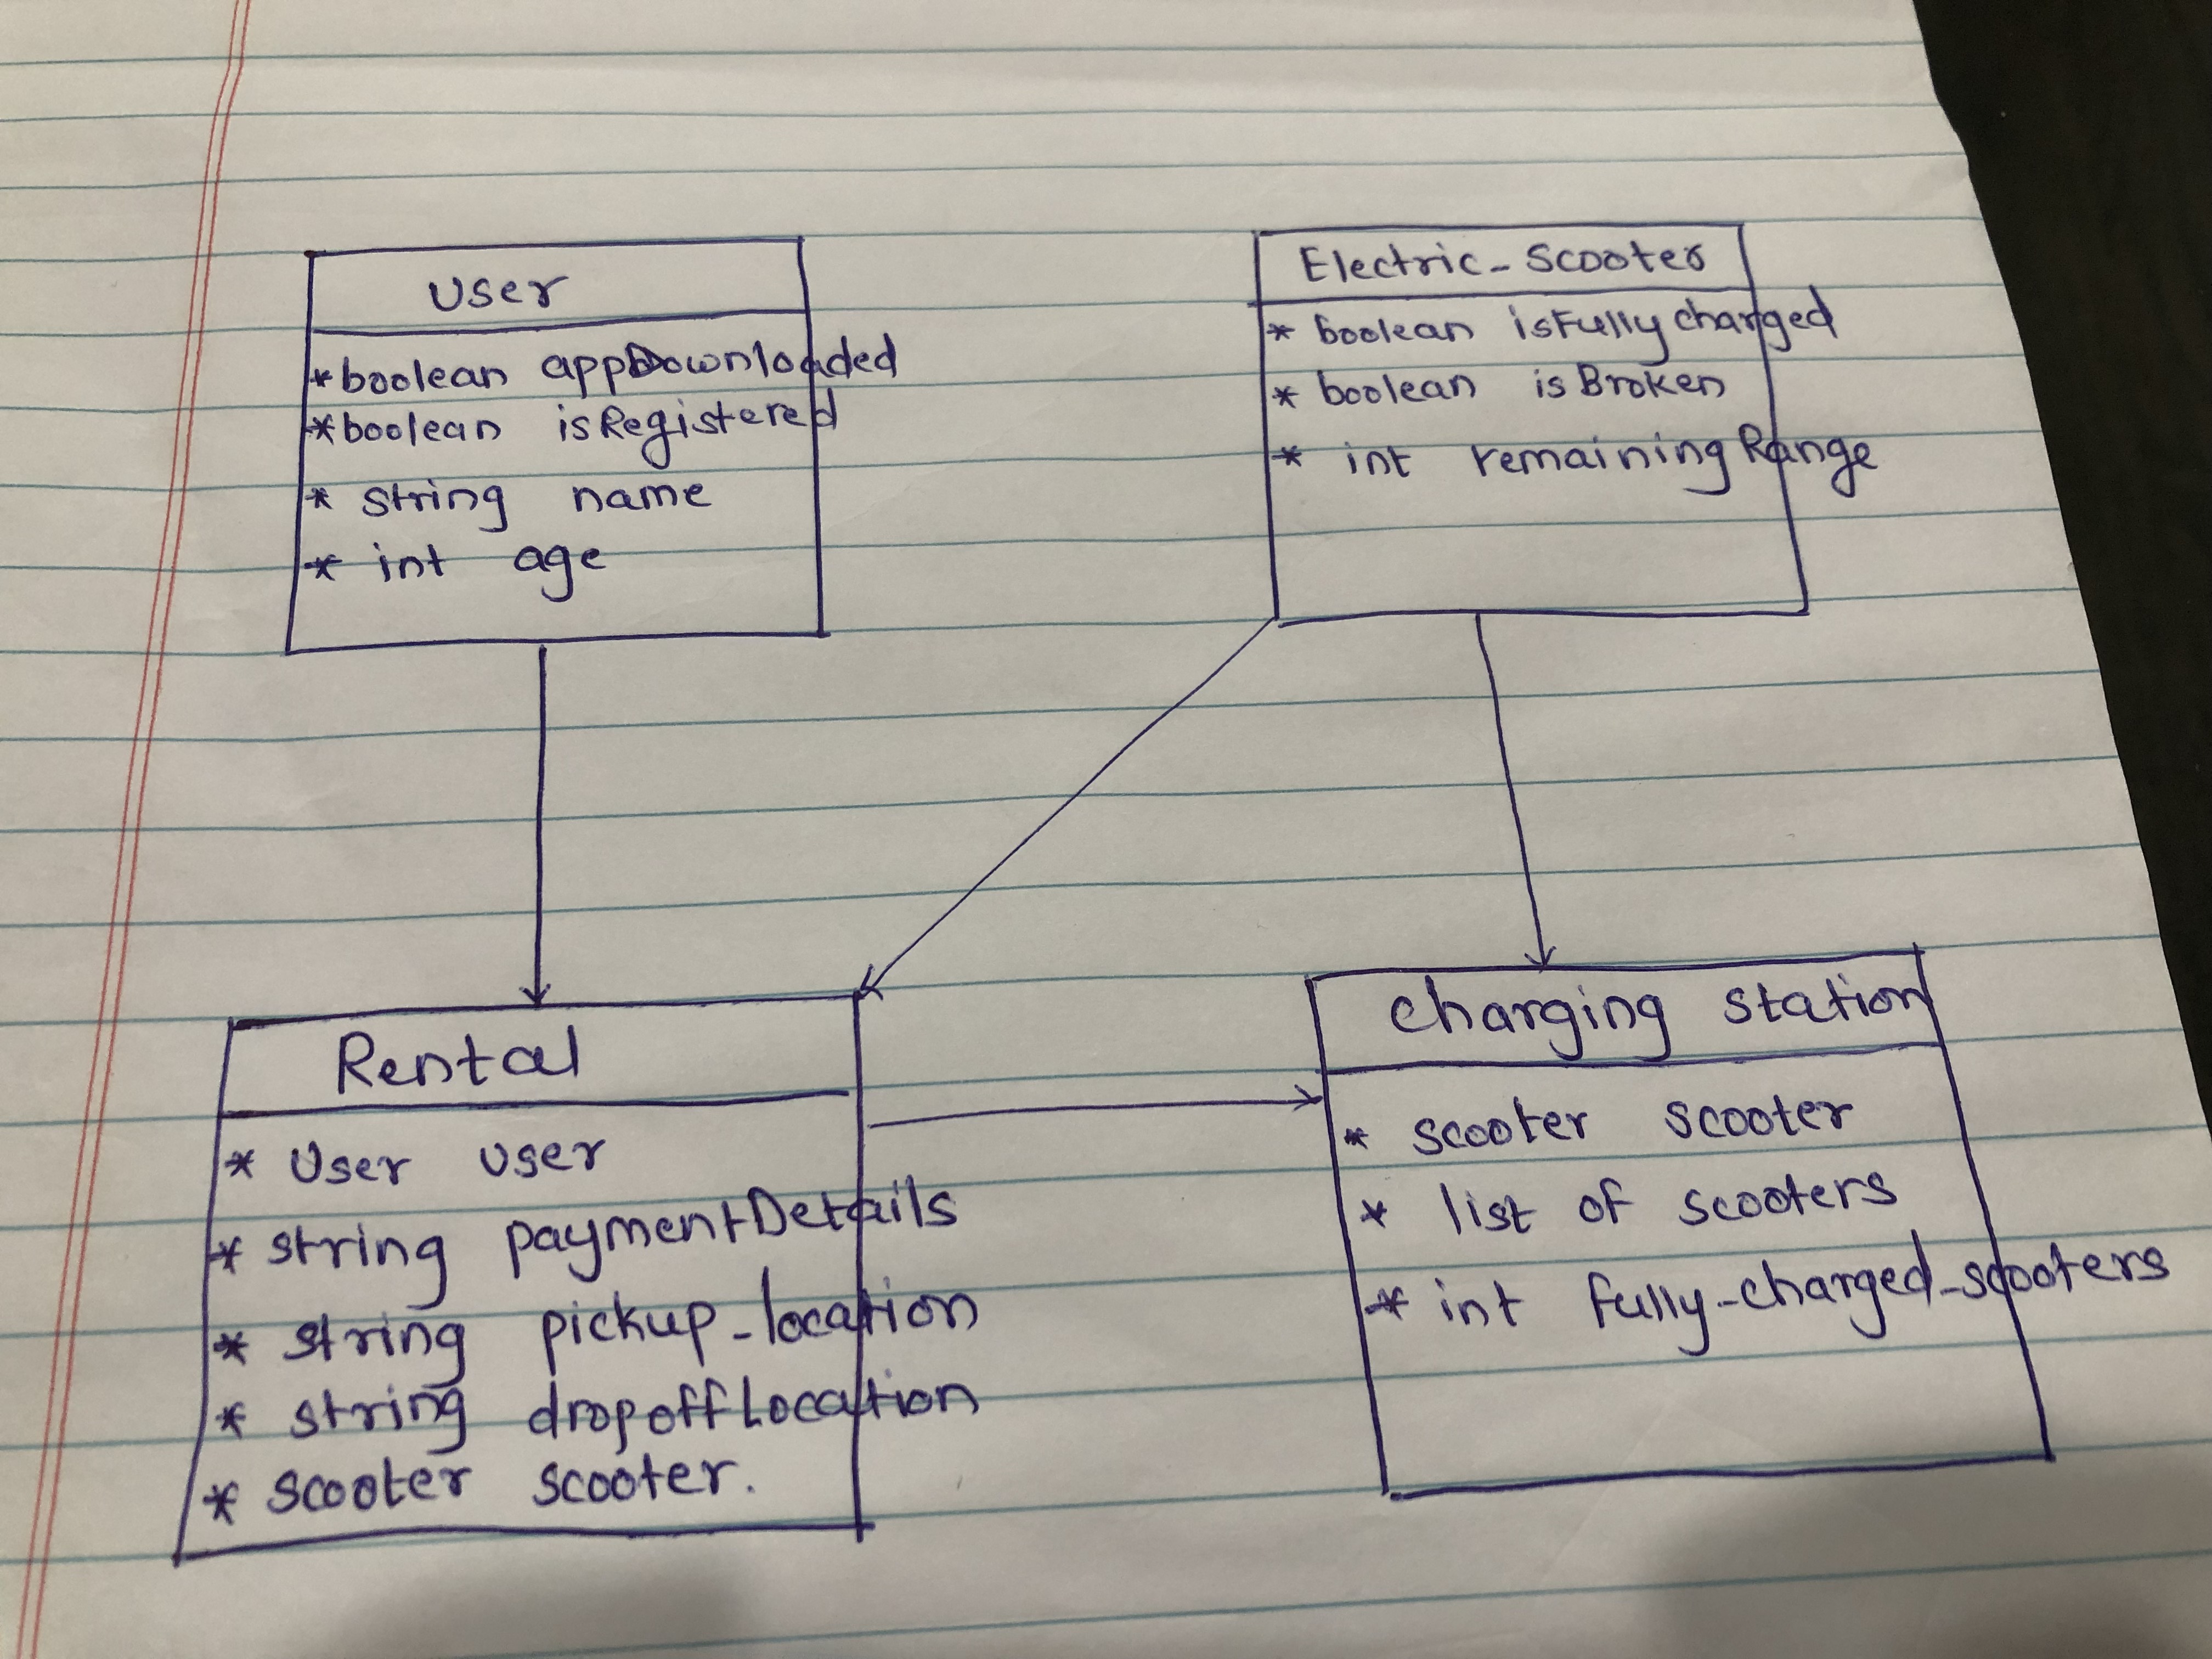 User
* boolean appDownloaded
* boolean isRegistered
* string name
* int age
Electric-Scooter
* boolean isFullycharged
* boolean isBroken
* int remainingRange
Rental
* User user
* string paymentDetails
* string pickup-location
* string dropoffLocation
* Scooter scooter.
charging station
* scooter scooter
* list of scooters
* int fully-charged-scooters